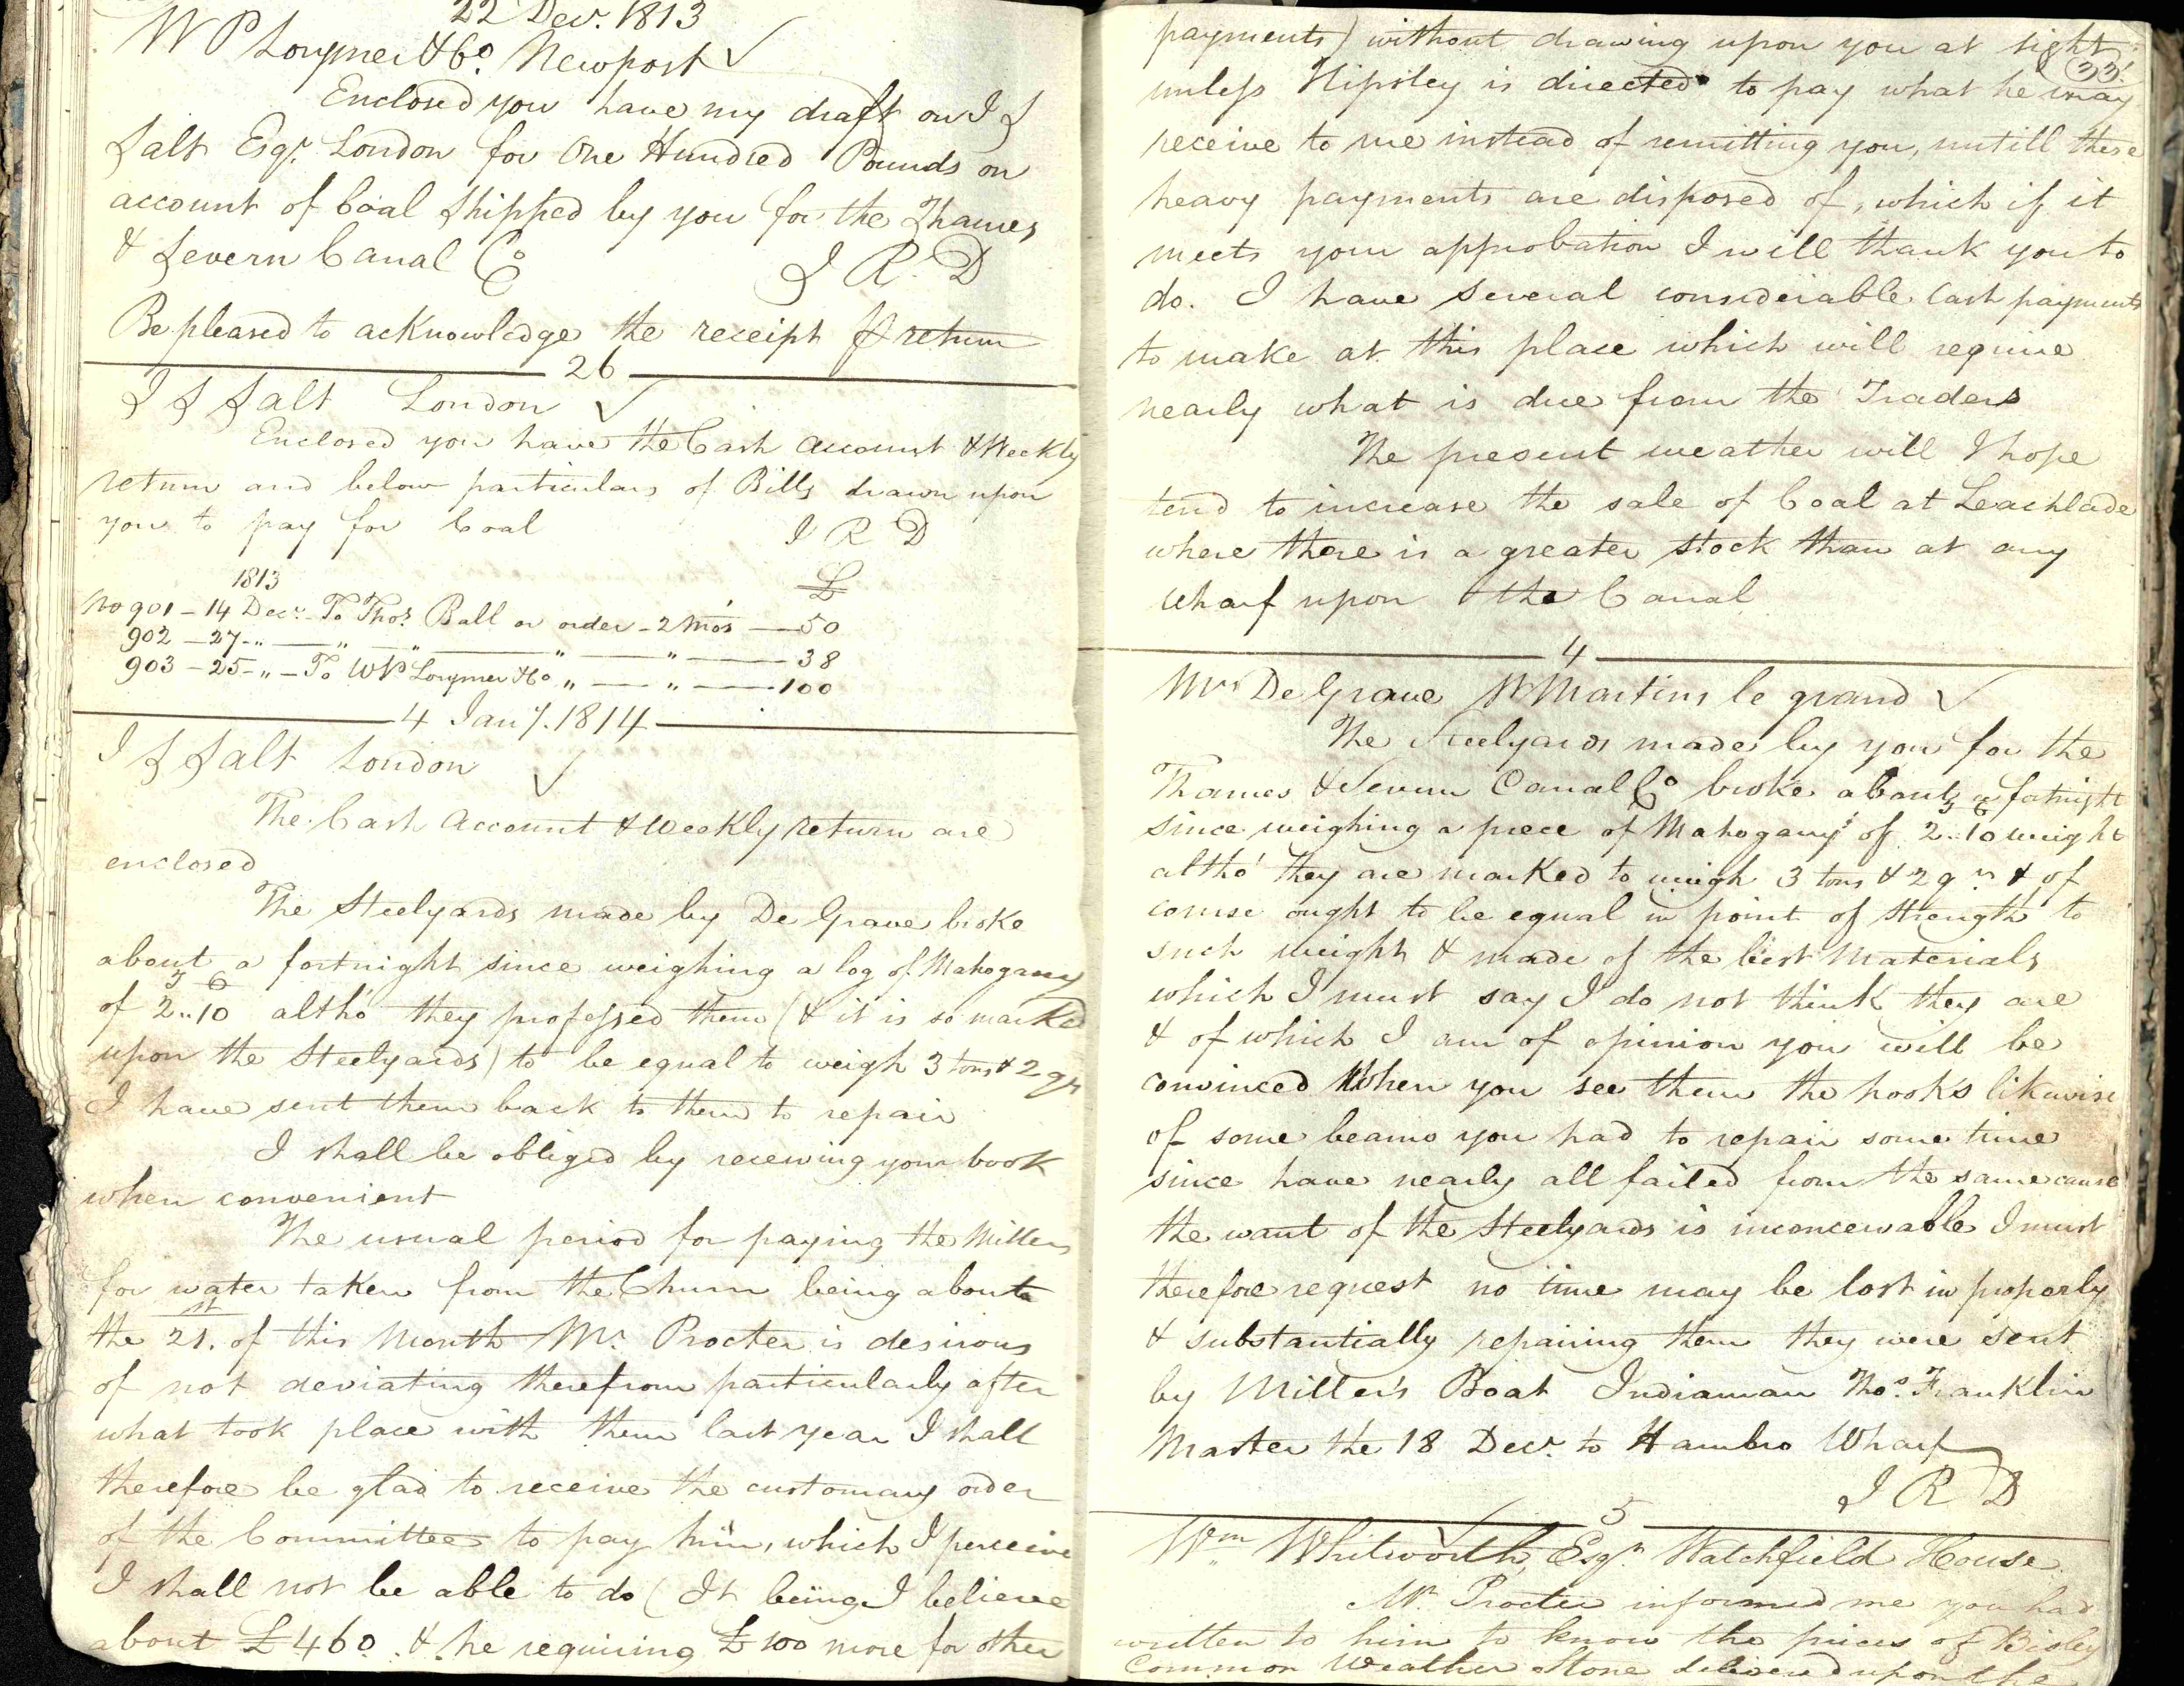 22 Decr. 1813
W P Lorymer & Co. Newport ✓
Enclosed you have my draft on J S
Salt Esqr. London for One Hundred Pounds on
account of Coal shipped by you for the Thames
& Severn Canal Co
J R D
Be pleased to acknowledge the receipt & return
26
J S Salt London ✓
Enclosed you have the Cash Account & Weekly
return and below particulars of Bills drawn upon
you to pay for Coal
J R D
1813 £
No 901 - 14 Decr. To Thos. Ball or order - 2 mos - 50
902 - 27 - " - " - " - " - 38
903 - 25 - " - To WP Lorymer & Co " - " - 100
4 Jany. 1814
J S Salt London ✓
The Cash Account & Weekly return are
enclosed
The Steelyards made by De Grave broke
about a fortnight since weighing a log of Mahogany
T C
of 2..10 altho' they professed them (& it is so marked
upon the Steelyards) to be equal to weigh 3 tons & 2 qrs
I have sent them back to them to repair
I shall be obliged by receiving your book
when convenient
The usual period for paying the Millers
for water taken from the Churn being about
the 21st. of this Month Mr. Procter is desirous
of not deviating therefrom particularly after
what took place with them last year I shall
therefore be glad to receive the customary order
of the Committee to pay him, which I perceive
I shall not be able to do (It being I believe
about £460. & he requiring £100 more for other
payments) without drawing upon you at sight
33
unless Hipsley is directed to pay what he may
receive to me instead of remitting you, untill these
heavy payments are disposed of, which if it
meets your approbation I will thank you to
do. I have several considerable Cash payments
to make at this place which will require
nearly what is due from the Traders
The present weather will I hope
tend to increase the sale of Coal at Leachlade
where there is a greater stock than at any
Wharf upon the Canal
4
Mr De Grave St Martins le grand ✓
The Steelyards made by you for the
Thames & Severn Canal Co broke about a fortnight
T C
since weighing a piece of Mahogany of 2..10 weight
altho' they are marked to weigh 3 tons & 2 qrs & of
course ought to be equal in point of strength to
such weight & made of the best Materials
which I must say I do not think they are
& of which I am of opinion you will be
convinced When you see them the hooks likewise
of some beams you had to repair some time
since have nearly all failed from the same cause
the want of the Steelyards is inconceivable I must
therefore request no time may be lost in properly
& substantially repairing them they were sent
by Miller's Boat Indiaman Thos. Franklin
Master the 18 Decr. to Hambro Wharf
J R D
5
Wm Whitworth, Esqr Watchfield House ✓
Mr. Procter informed me you had
written to him to know the prices of Bisley
Common Weather Stone delivered upon the